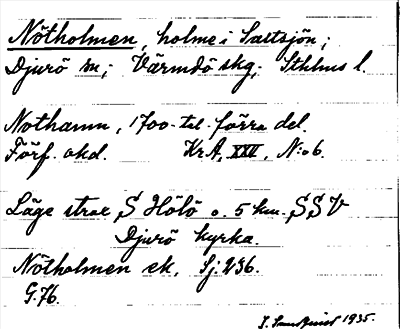 Nötholmen, holme i Saltsjön;
Djurö sn; Värmdö skg; Sthlms l.
Nothamn, 1700-tal. förra del.
Förf. okd. Kr.A, XXII, N:o 6.
Läge strax S Hölö o. 5 km. SSV
Djurö kyrka.
Nötholmen ek, Sj. 236.
G. 76.
1935.